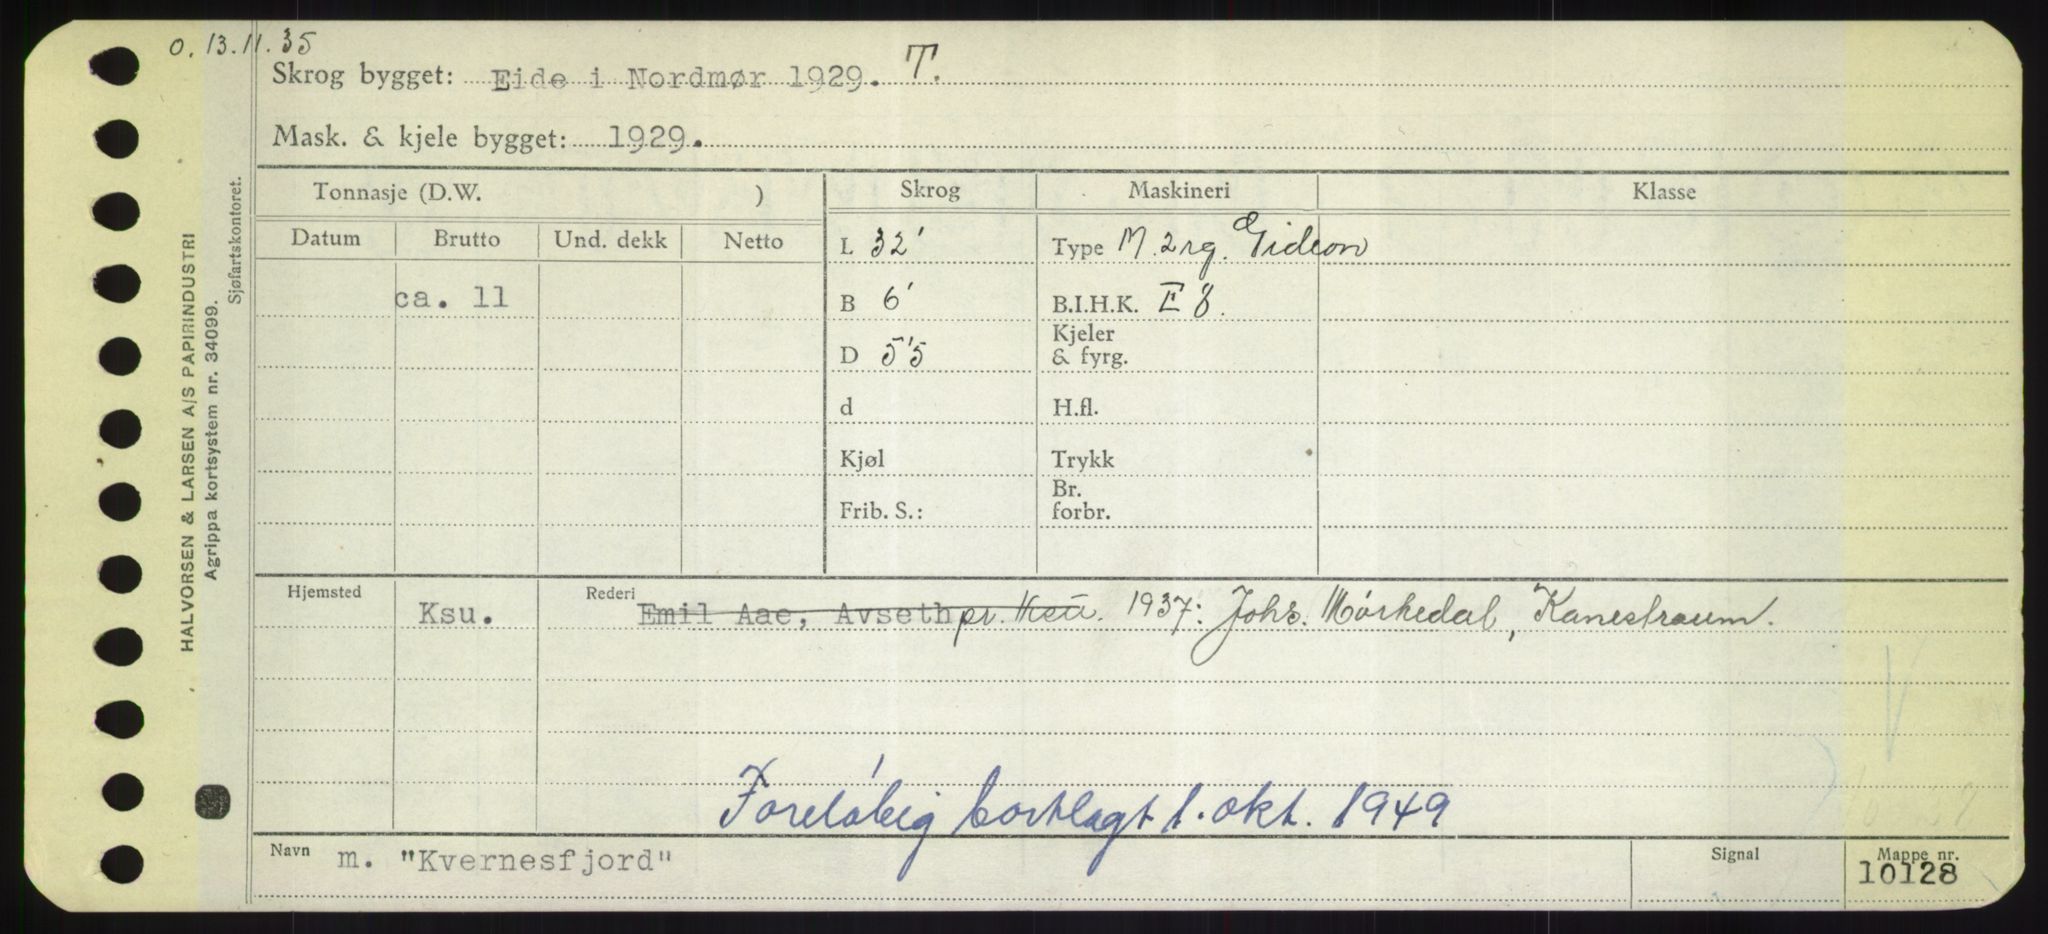 O. 13.11.35
Skrog bygget: Eide i Nordmør 1929. T.
Mask. & kjele bygget: 1929.
Tonnasje (D.W. )
Skrog
Maskineri
Klasse
Datum Brutto Und. dekk Netto
L 32'
Type M. 2 rg. Gideon
ca. 11
B 6'
B.I.H.K. E 8.
D 5'5
Kjeler
& fyrg.
d
H.fl.
Kjøl
Trykk
Frib. S.:
Br.
forbr.
Hjemsted Ksu.
Rederi Emil Aae, Avseth pr. Ksu. 1937: Johs. Mørkedal, Kanestraum.
Foreløbig bortlagt 1. okt. 1949
Navn m. "Kvernesfjord"
Signal
Mappe nr.
10128
HALVORSEN & LARSEN A/S PAPIRINDUSTRI
Agrippa kortsystem nr. 34099.
Sjøfartskontoret.